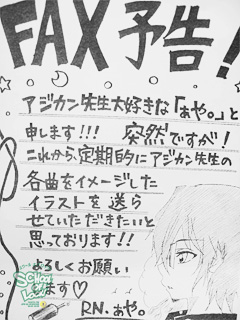 FAX予告!
アジカン先生大好きな「ぁゃ。」と
申します!!! 突然ですが!
これから、定期的にアジカン先生の
各曲をイメージした
イラストを送ら
せていただきたいと
思っております!!
よろしくお願い
します♡
R.N.ぁゃ。
SCHOOL OF LOCK!